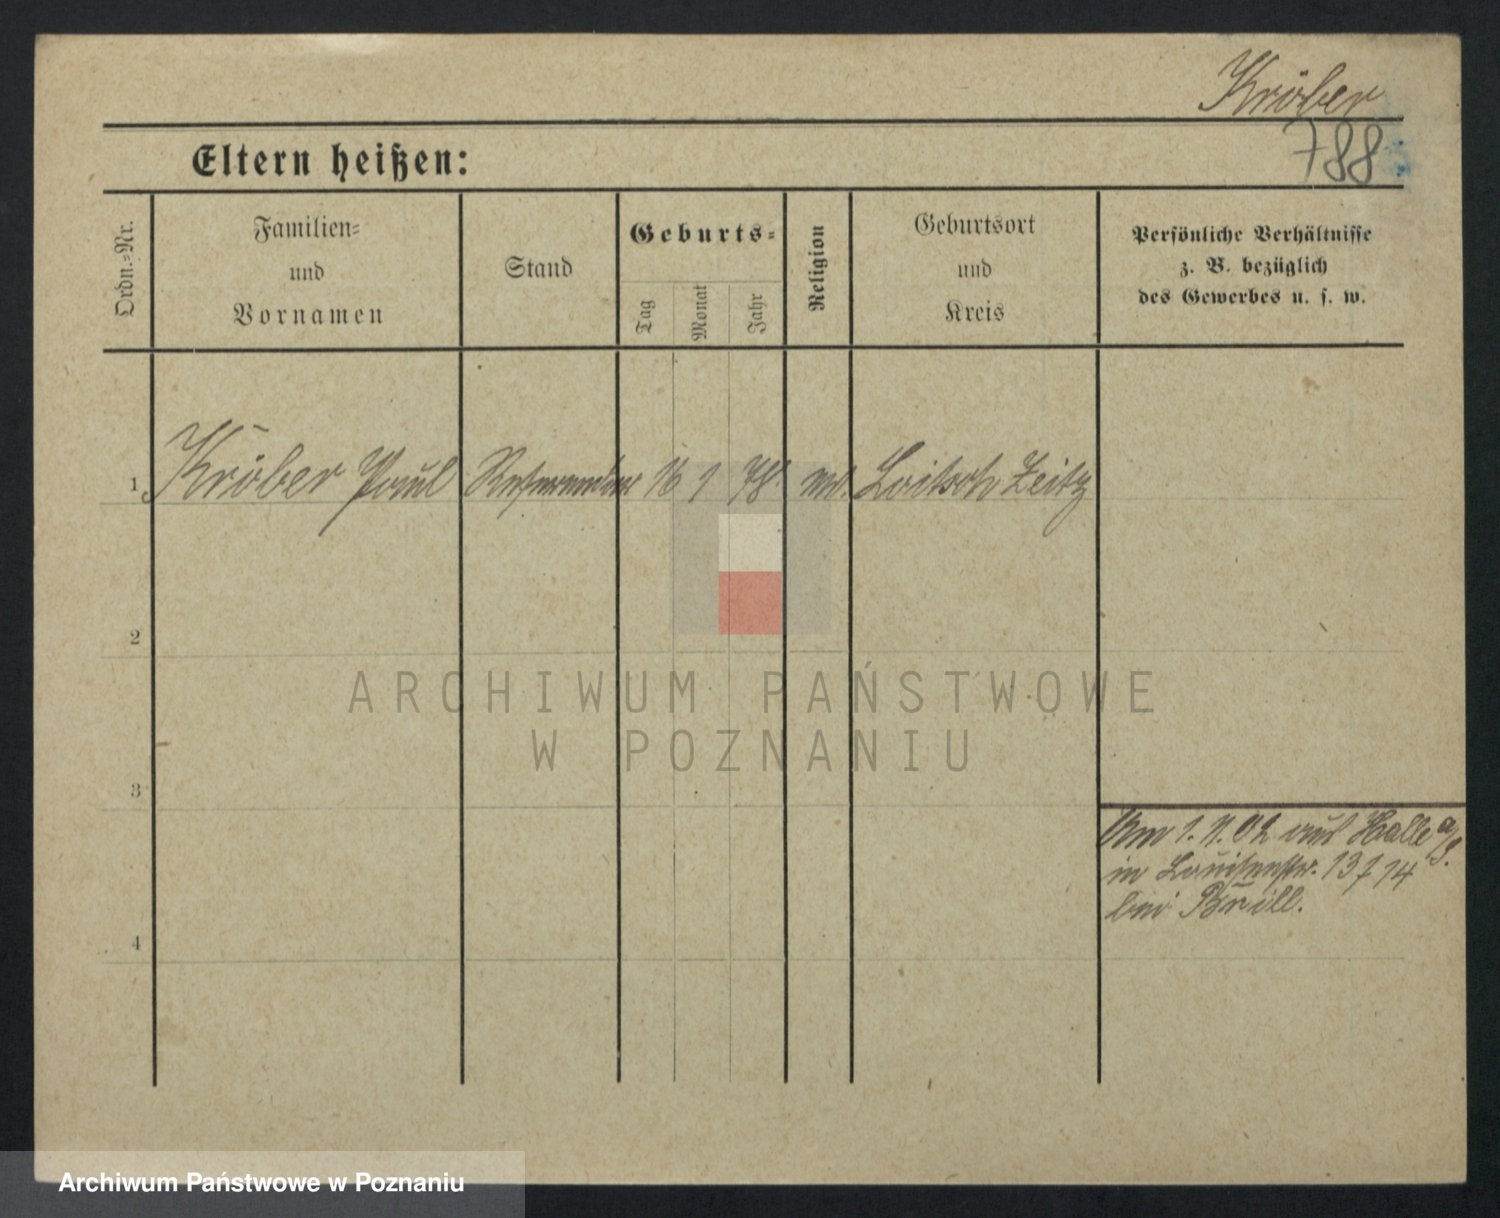 Kröber
788
Eltern heißen:
Ordn.=Nr.
Familien=
und
Vornamen
Stand
Geburts=
Tag
Monat
Jahr
Religion
Geburtsort
und
Kreis
Persönliche Verhältnisse
z. B. bezüglich
des Gewerbes u. s. w.
1 Kröber Paul Referendar 16 1 78 ev. Loitsch Zeitz
2
3
4
Am 1. 11. 02 aus Halle a/S.
in Louisenstr. 13 / 14
bei Brill.
ARCHIWUM PAŃSTWOWE
W POZNANIU
Archiwum Państwowe w Poznaniu